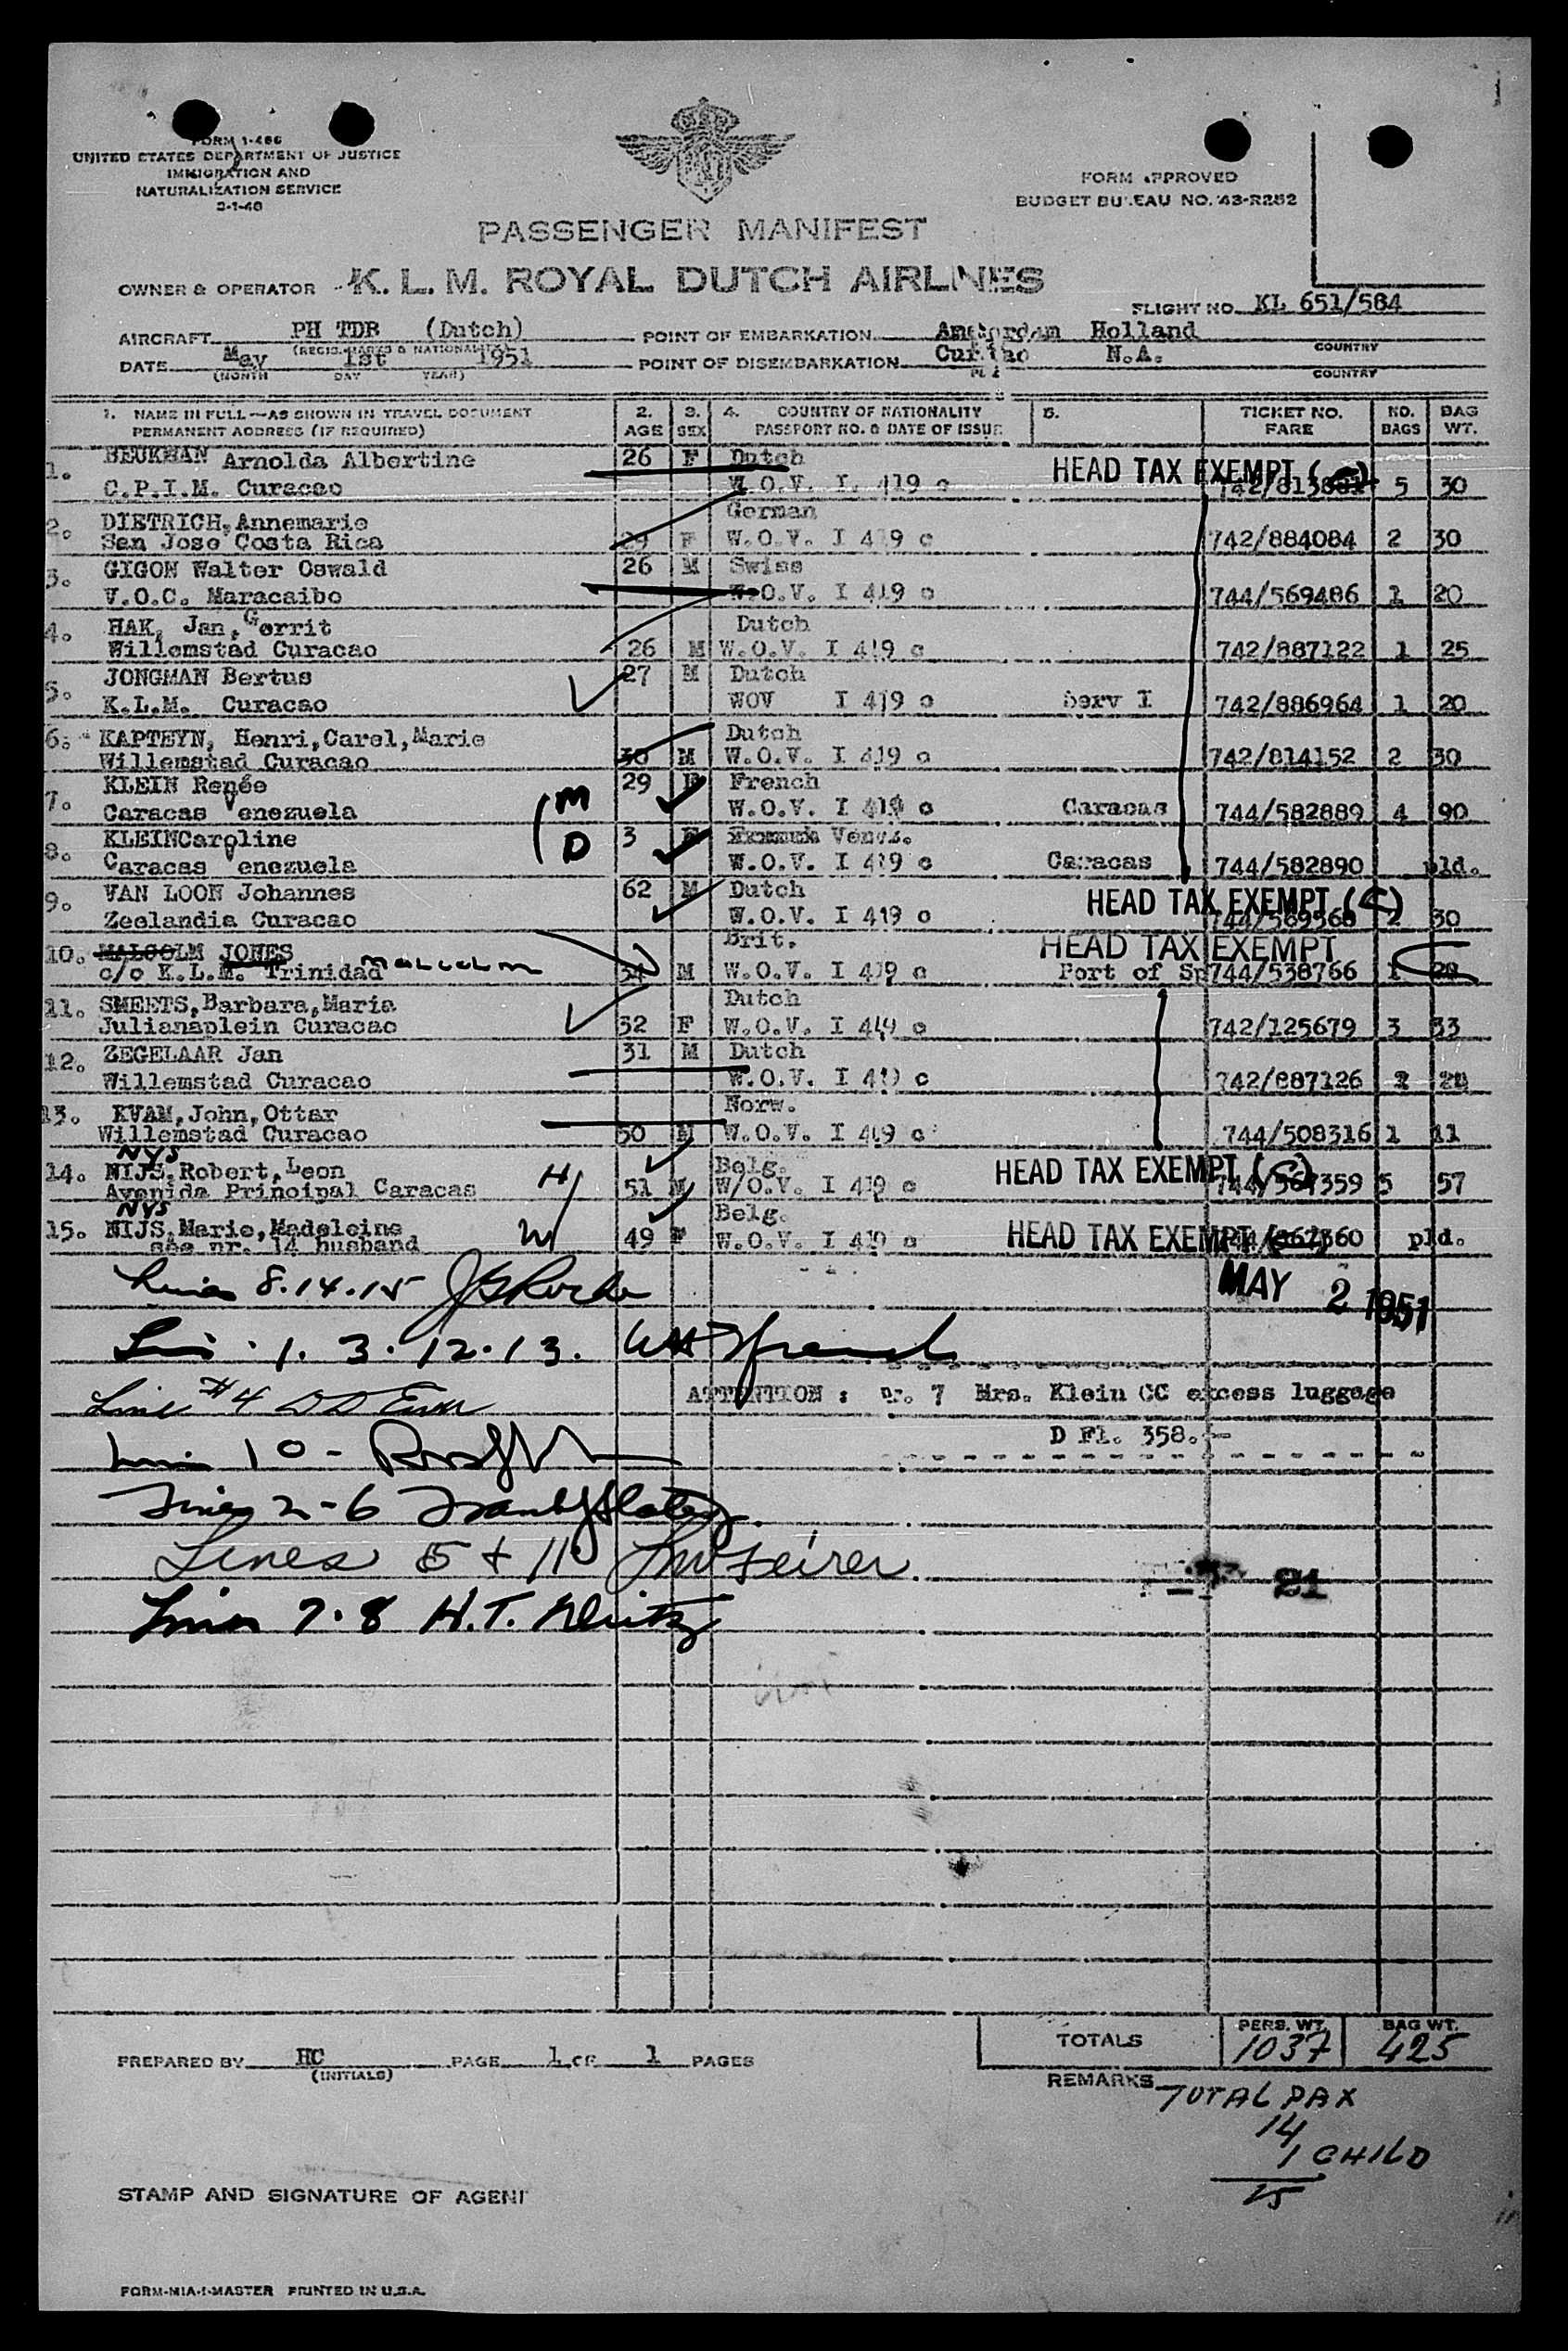 FORM I-466
UNITED STATES DEPARTMENT OF JUSTICE
IMMIGRATION AND
NATURALIZATION SERVICE
2-1-48
FORM APPROVED
BUDGET BUREAU NO. 43-R252
PASSENGER MANIFEST
OWNER & OPERATOR K. L. M. ROYAL DUTCH AIRLINES
FLIGHT NO. KL 651/584
AIRCRAFT PH TDR (Dutch) POINT OF EMBARKATION Amsterdam Holland
(REGIS. MARKS & NATIONALITY) COUNTRY
DATE May 1st 1951 POINT OF DISEMBARKATION Curacao N.A.
(MONTH DAY YEAR) COUNTRY
1. NAME IN FULL—AS SHOWN IN TRAVEL DOCUMENT 2. 3. 4. COUNTRY OF NATIONALITY 5. TICKET NO. NO. BAG
PERMANENT ADDRESS (IF REQUIRED) AGE SEX PASSPORT NO. & DATE OF ISSUE FARE BAGS WT.
1. BEUKMAN Arnolda Albertine 26 F Dutch HEAD TAX EXEMPT
C.P.I.M. Curacao W.O.V. I. 419 c 5 30
2. DIETRICH, Annemarie German
San Jose Costa Rica 29 F W.O.V. I 419 c 742/884084 2 30
3. GIGON Walter Oswald 26 M Swiss
V.O.C. Maracaibo W.O.V. I 419 c 744/569486 1 20
4. HAK, Jan, Gerrit Dutch
Willemstad Curacao 26 M W.O.V. I 419 c 742/887122 1 25
5. JONGMAN Bertus 27 M Dutch
K.L.M. Curacao WOV I 419 c Serv I 742/886964 1 20
6. KAPTEYN, Henri, Carel, Marie Dutch
Willemstad Curacao 30 M W.O.V. I 419 c 742/814152 2 30
7. KLEIN Renée M 29 F French
Caracas Venezuela W.O.V. I 419 c Caracas 744/582889 4 90
8. KLEINCaroline D 3 F Venez.
Caracas Venezuela W.O.V. I 419 c Caracas 744/582890 pld.
9. VAN LOON Johannes 62 M Dutch HEAD TAX EXEMPT (C)
Zeelandia Curacao W.O.V. I 419 c 744/569568 2 30
10. MALCOLM JONES Brit. HEAD TAX EXEMPT
c/o K.L.M. Trinidad MALCOLM 34 M W.O.V. I 419 c Port of Sp 744/538766 1 20
11. SMEETS, Barbara, Maria Dutch
Julianaplein Curacao 32 F W.O.V. I 419 c 742/125679 3 33
12. ZEGELAAR Jan 31 M Dutch
Willemstad Curacao W.O.V. I 419 c 742/887126 2
13. KVAM, John, Ottar Norw.
Willemstad Curacao 50 M W.O.V. I 419 c 744/508316 1 11
NYS
14. NIJS, Robert, Leon H Belg. HEAD TAX EXEMPT (C)
Avenida Principal Caracas 51 M W/O.V. I 419 c 5 57
NYS
15. NIJS, Marie, Madeleine W Belg. HEAD TAX EXEMPT
see nr. 14 husband 49 F W.O.V. I 419 c pld.
Lines 8.14.15
MAY 2 1951
Line . 1. 3. 12. 13. French
Line #4
ATTENTION : nr. 7 Mrs. Klein CC excess luggage
D Fl. 358.--
Line 10 -
Lines 2-6
Lines 5 + 11
21
Lines 7.8 H.T.
TOTALS PERS. WT. 1037 BAG WT. 425
PREPARED BY HC PAGE 1 OF 1 PAGES
(INITIALS)
REMARKS TOTAL PAX
14
1 CHILD
15
STAMP AND SIGNATURE OF AGENT
FORM-MIA-1-MASTER PRINTED IN U.S.A.